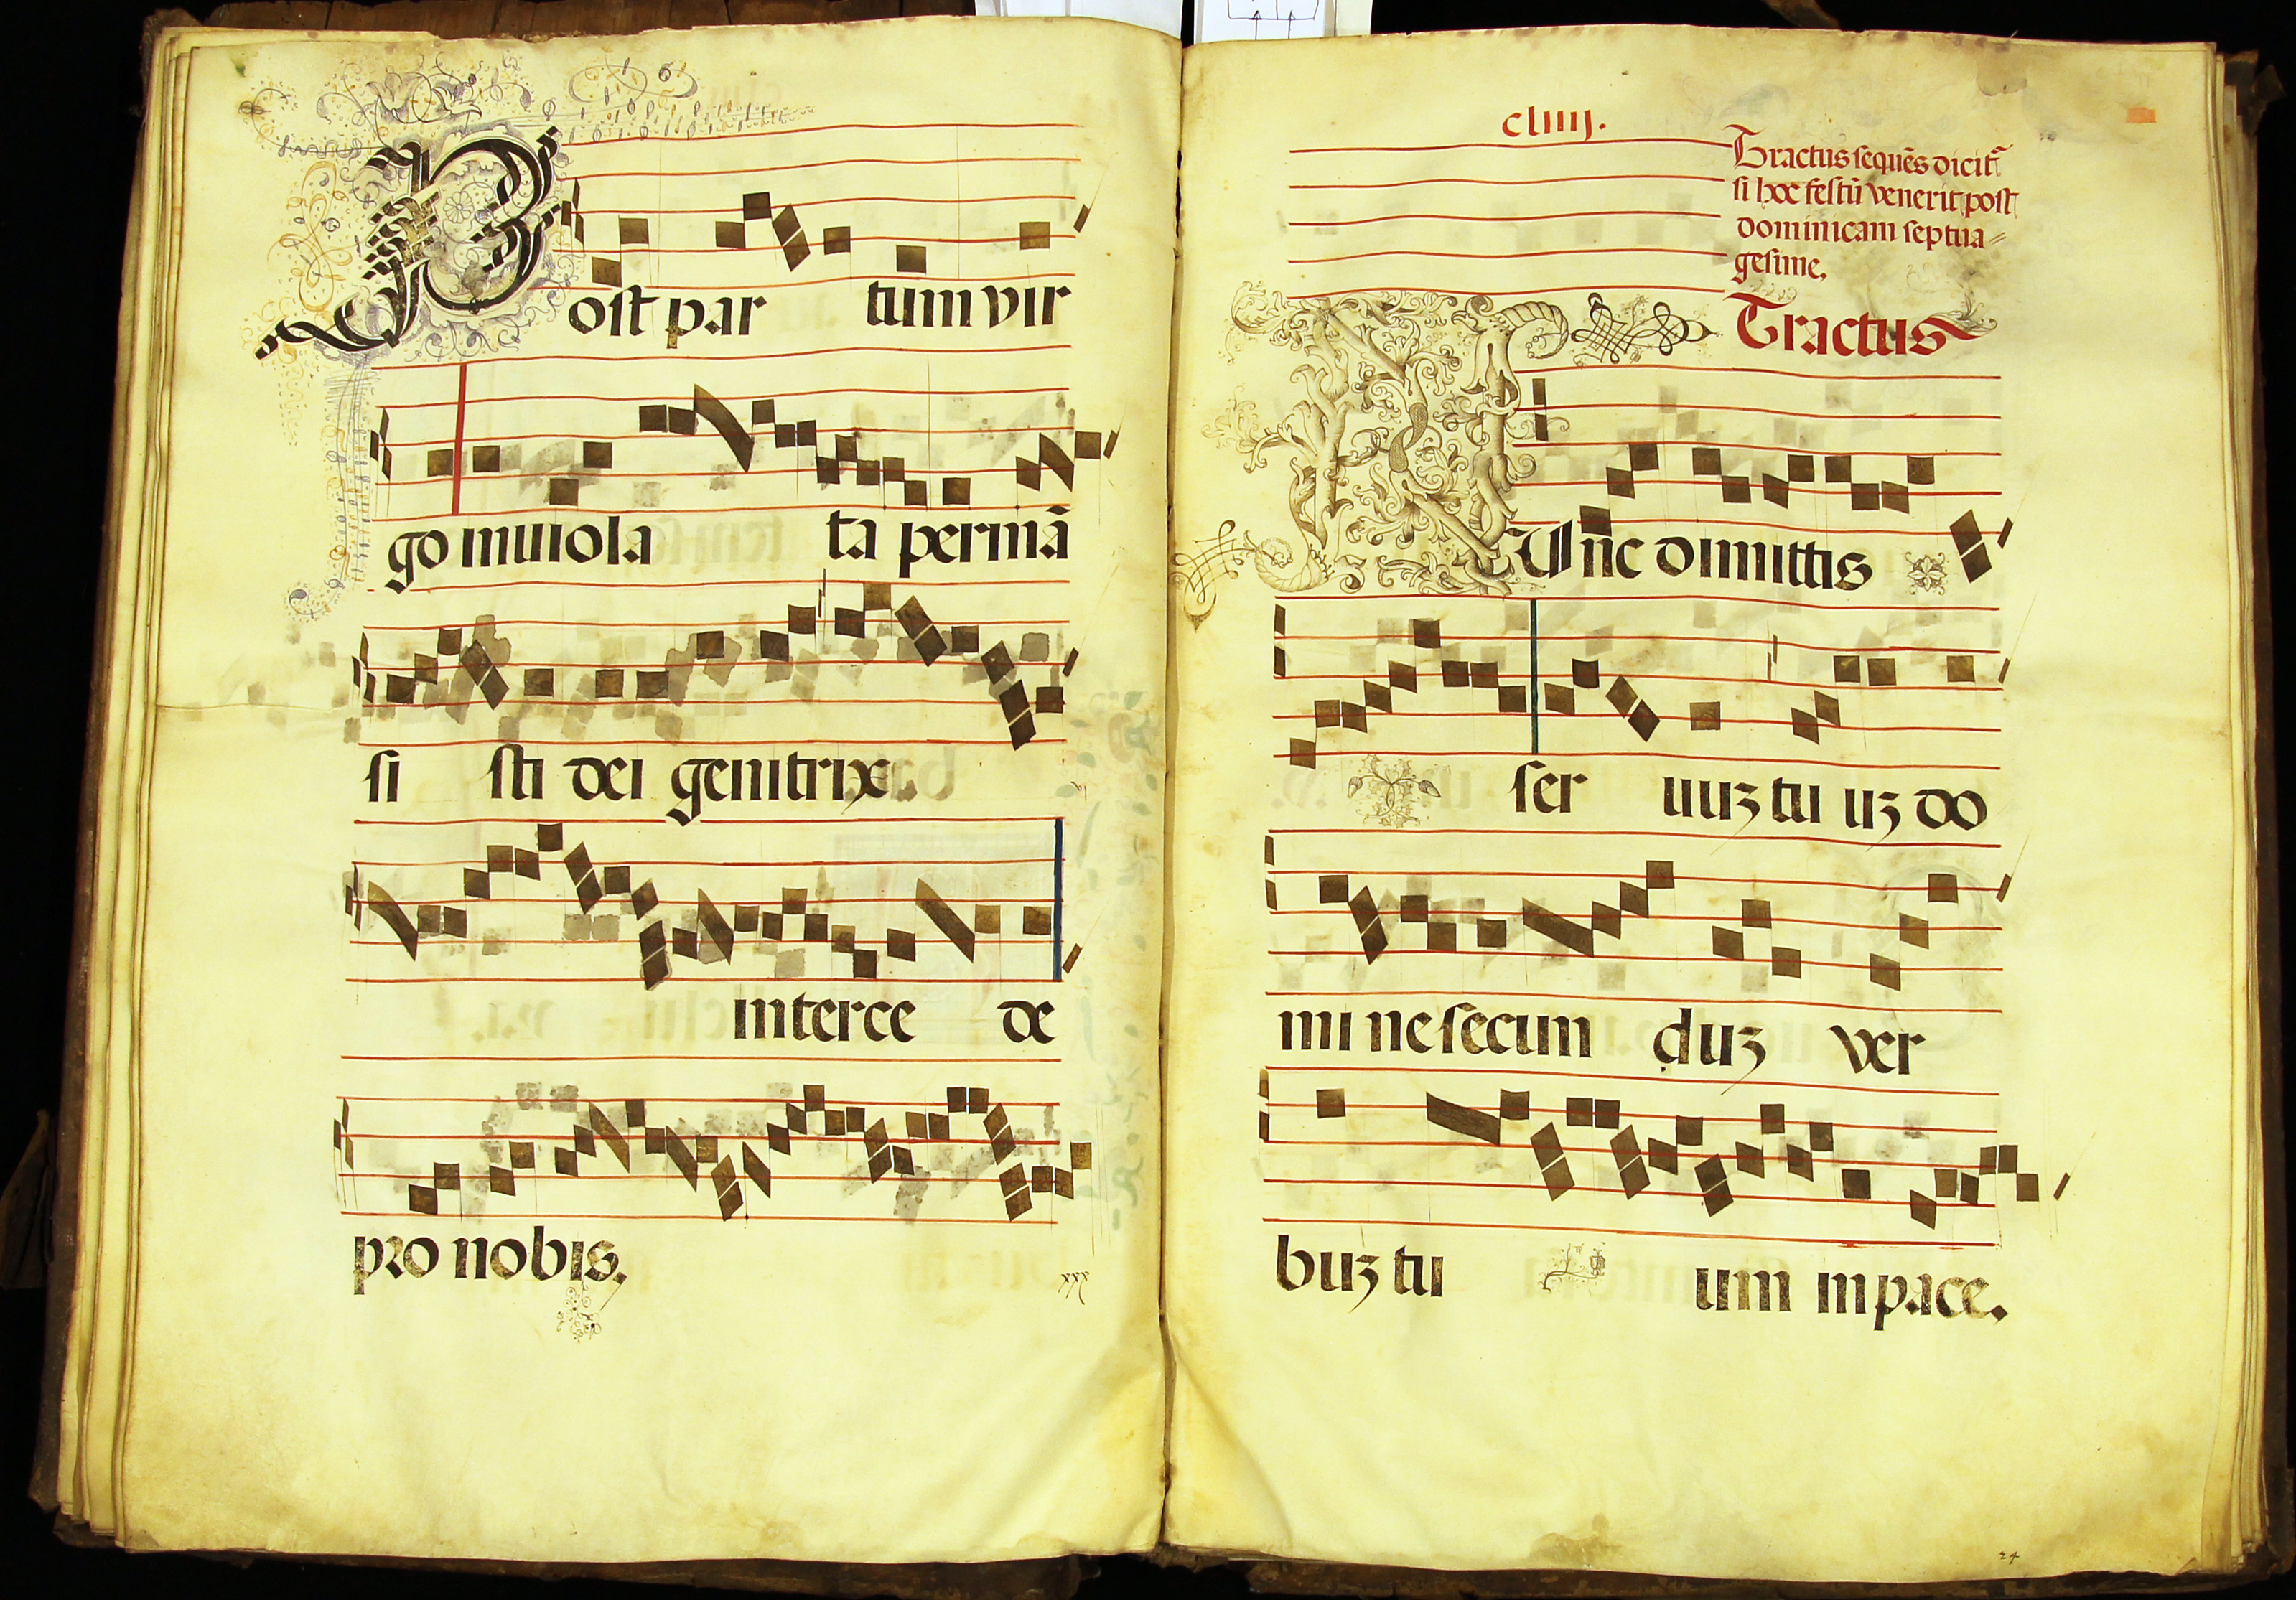 Post par tum vir
go inuiola ta permā
si sti dei genitrix.
interce de
pro nobis.
xxx
cliiij.
Tractus sequēs dicit᷑
si hoc festū venerit post
dominicam septua=
gesime.
Tractus
NUnc dimittis
ser uuʒ tu uʒ do
mi ne secun duʒ ver
buʒ tu um in pace.
24